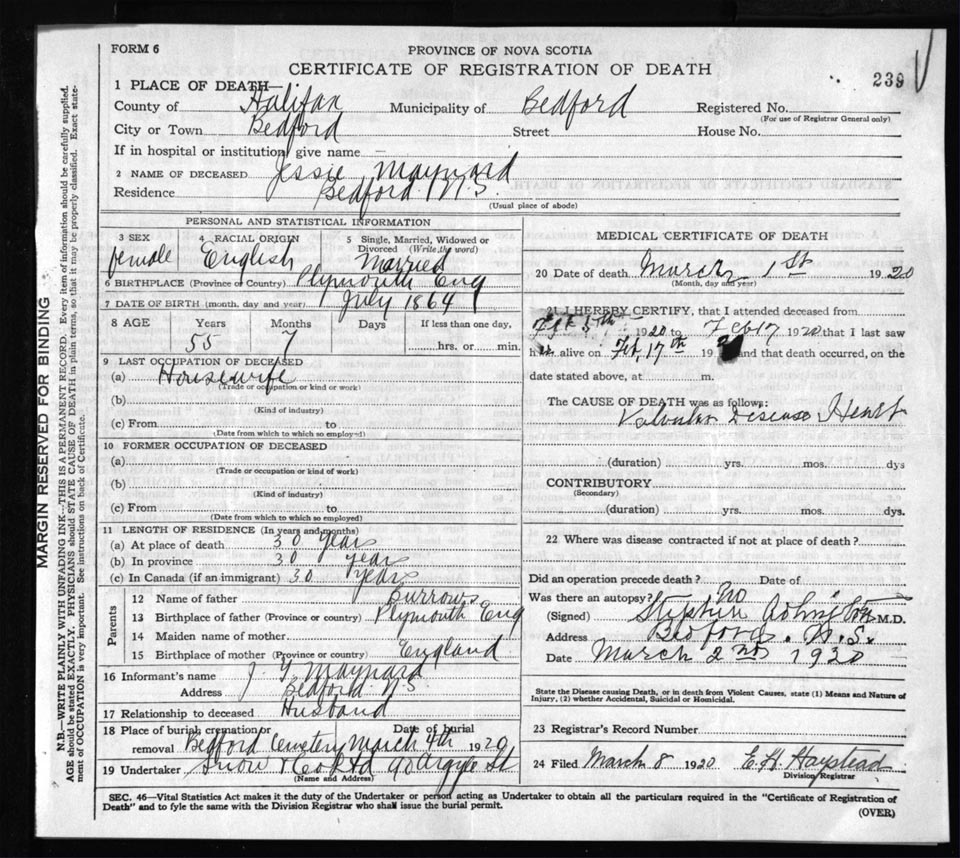 FORM 6
PROVINCE OF NOVA SCOTIA
CERTIFICATE OF REGISTRATION OF DEATH
239
1 PLACE OF DEATH—
County of Halifax Municipality of Bedford Registered No.
(For use of Registrar General only)
City or Town Bedford Street House No.
If in hospital or institution, give name —
2 NAME OF DECEASED Jessie Maynard
Residence Bedford N.S.
(Usual place of abode)
PERSONAL AND STATISTICAL INFORMATION
3 SEX female
4 RACIAL ORIGIN English
5 Single, Married, Widowed or Divorced (Write the word) Married
6 BIRTHPLACE (Province or Country) Plymouth Eng
7 DATE OF BIRTH (month, day and year) July 1864
8 AGE Years Months Days If less than one day,
55 7 hrs. or min.
9 LAST OCCUPATION OF DECEASED
(a) Housewife
(Trade or occupation or kind or work)
(b)
(Kind of industry)
(c) From to
(Date from which to which so employed)
10 FORMER OCCUPATION OF DECEASED
(a)
(Trade or occupation or kind of work)
(b)
(Kind of industry)
(c) From to
(Date from which to which so employed)
11 LENGTH OF RESIDENCE (In years and months)
(a) At place of death 30 years
(b) In province 30 years
(c) In Canada (if an immigrant) 30 years
Parents
12 Name of father Burrows
13 Birthplace of father (Province or country) Plymouth Eng
14 Maiden name of mother
15 Birthplace of mother (Province or country) England
16 Informant's name J. Maynard
Address Bedford NS
17 Relationship to deceased Husband
18 Place of burial, cremation or removal Bedford Cemetery Date of burial March 4th 1920
19 Undertaker Snow & Co Ltd 90 Argyle St
(Name and Address)
MEDICAL CERTIFICATE OF DEATH
20 Date of death March 1st 1920
(Month, day and year)
21 I HEREBY CERTIFY, that I attended deceased from
Feb 5th 1920 to Feb 17 1920 that I last saw
h alive on Feb 17th 19 and that death occurred, on the
date stated above, at m.
The CAUSE OF DEATH was as follows:
Valvular Disease Heart
(duration) yrs. mos. dys
CONTRIBUTORY
(Secondary)
(duration) yrs. mos. dys.
22 Where was disease contracted if not at place of death?
Did an operation precede death? Date of
Was there an autopsy? no
(Signed) M.D.
Address Bedford. N.S.
Date March 2nd 1920
State the Disease causing Death, or in death from Violent Causes, state (1) Means and Nature of
Injury, (2) whether Accidental, Suicidal or Homicidal.
23 Registrar's Record Number
24 Filed March 8 1920 E. H. Haystead
Division Registrar
SEC. 46—Vital Statistics Act makes it the duty of the Undertaker or person acting as Undertaker to obtain all the particulars required in the "Certificate of Registration of
Death" and to fyle the same with the Division Registrar who shall issue the burial permit.
(OVER)
MARGIN RESERVED FOR BINDING
N.B.—WRITE PLAINLY WITH UNFADING INK—THIS IS A PERMANENT RECORD. Every item of information should be carefully supplied.
AGE should be stated EXACTLY. PHYSICIANS should STATE CAUSE OF DEATH in plain terms, so that it may be properly classified. Exact state-
ment of OCCUPATION is very important. See instructions on back of Certificate.